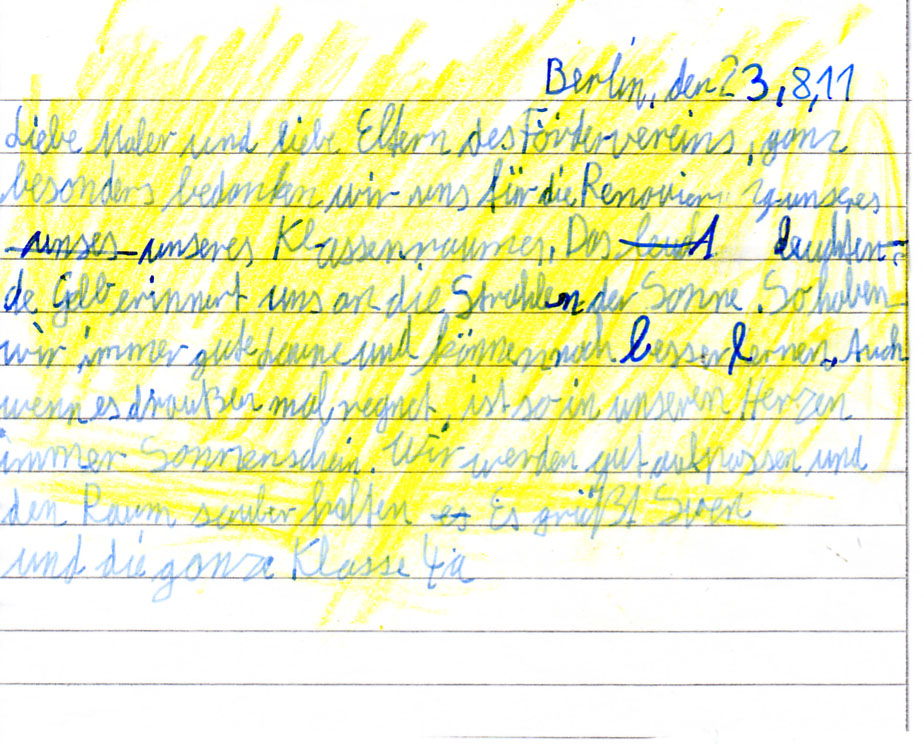 Berlin, den 23,8,11
Liebe Maler und liebe Eltern des Fördervereins, ganz
besonders bedanken wir uns für die Renovierung unseres
unses unseres Klassenraumes. Das leucht leuchten-
de Gelb erinnert uns an die Strahlen der Sonne. So haben
wir immer gute Laune und können noch besser lernen. Auch
wenn es draußen mal regnet, ist so in unseren Herzen
immer Sonnenschein. Wir werden gut aufpassen und
den Raum sauber halten es Es grüßt
und die ganze Klasse 4a